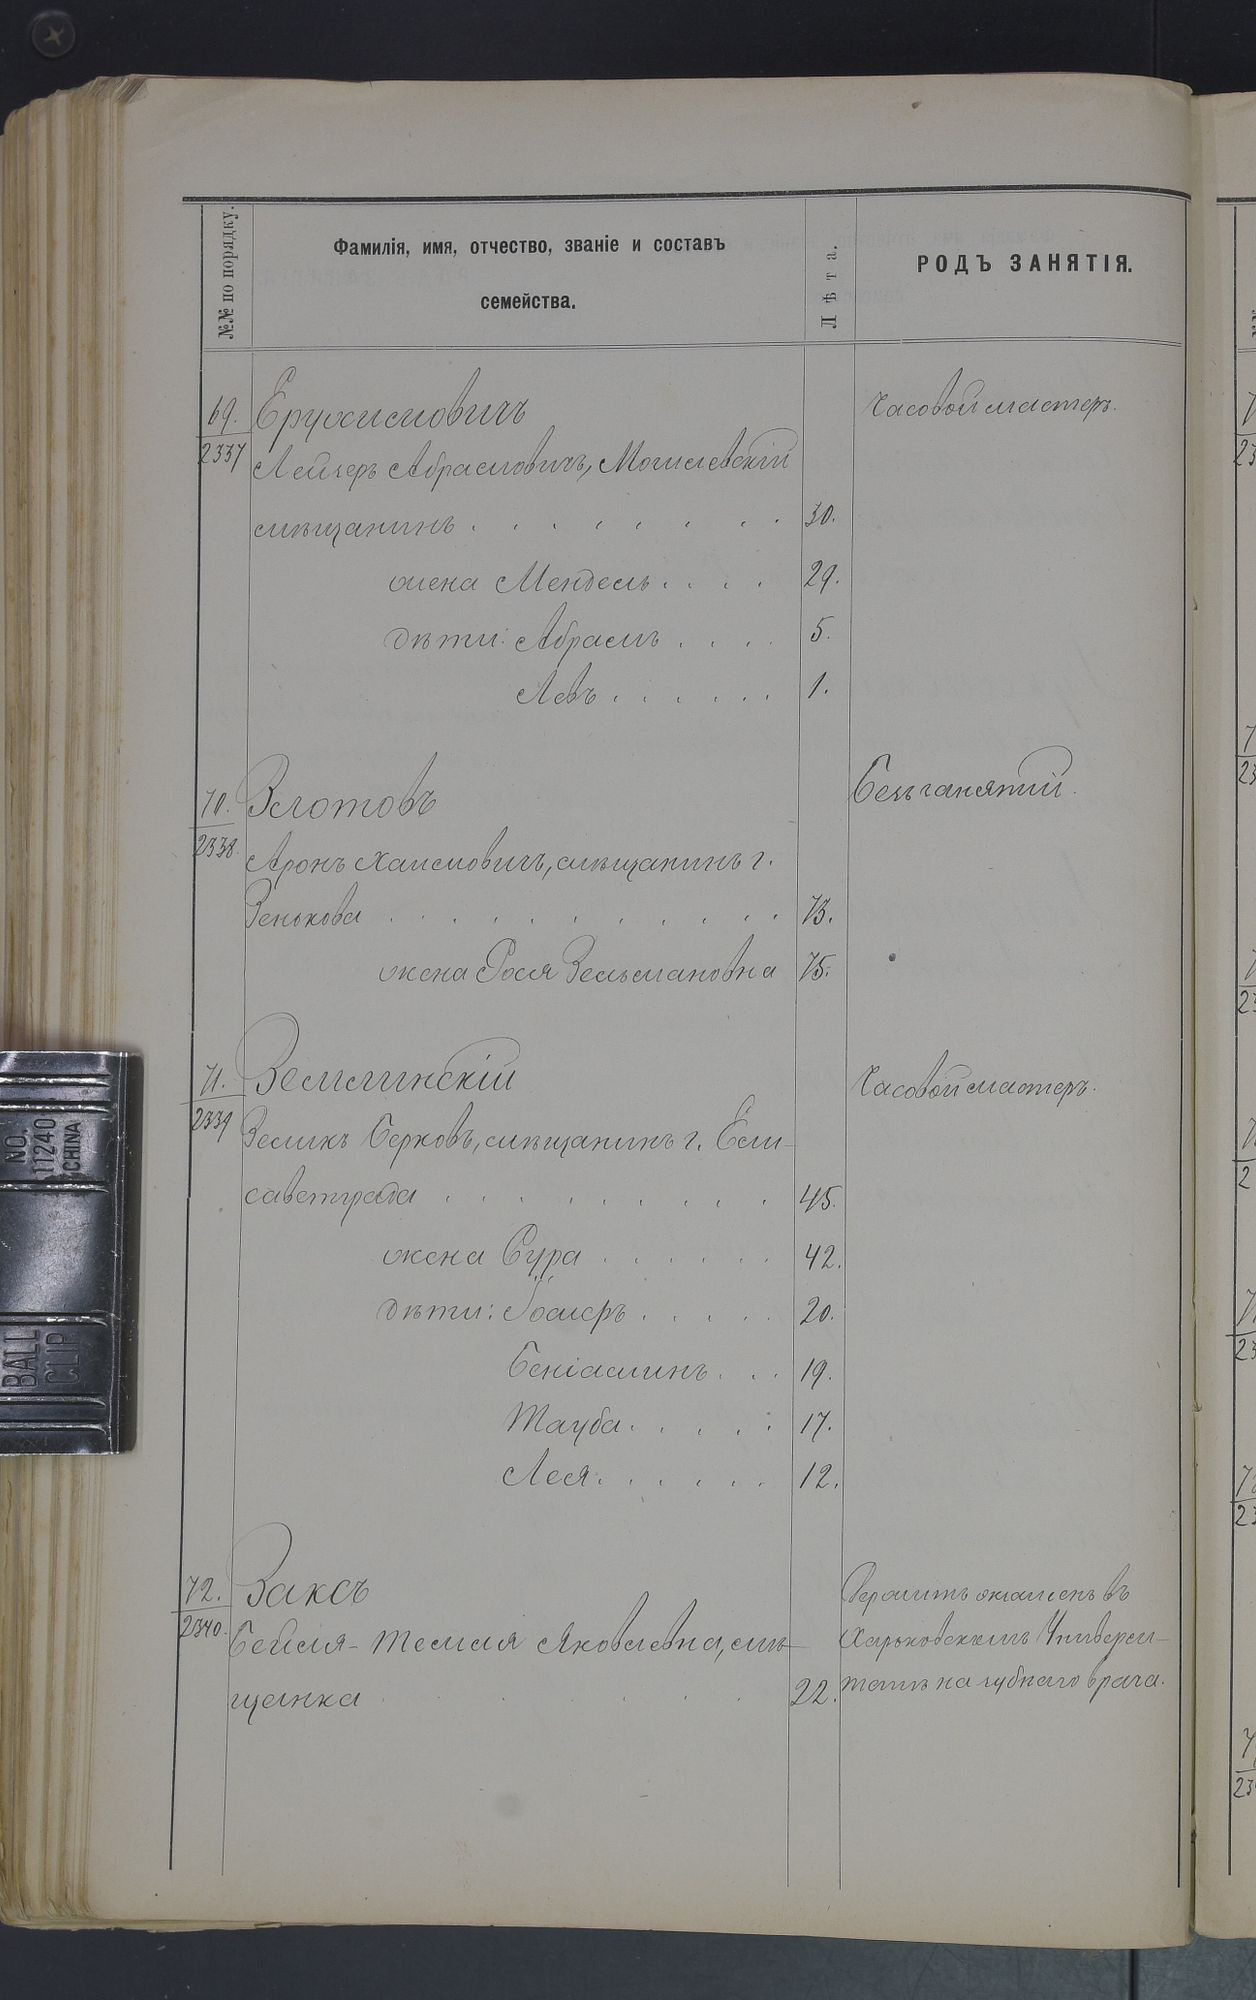 №№ по порядку.
Фамилія, имя, отчество, званіе и составъ
семейства.
Лѣта.
РОДЪ ЗАНЯТІЯ.
69.
2337
Ерухимовичъ
Часовой мастеръ.
Лейзеръ Абрамовичъ, Могилевскій
мѣщанинъ . . . . . . . . 30.
жена Мендель . . . . 29.
дѣти: Абрамъ . . . . 5.
Левъ . . . . . . 1.
70.
2338.
Золотовъ
Безъ занятій.
Аронъ Хаимовичъ, мѣщанинъ г.
Зенькова . . . . . . . . . . 73.
жена Рося Зельмановна 75.
71.
2339
Землинскій
Часовой мастеръ.
Зеликъ Берковъ, мѣщанинъ г. Ели-
саветграда . . . . . . . . . 45.
жена Сура . . . . . . 42.
дѣти: Іосифъ . . . . . 20.
Беніаминъ . . . 19.
Тауба . . . . . 17.
Лея . . . . . . 12.
72.
2340.
Заксъ
Бейля-Темля Яковлевна, мѣ-
щанка . . . . . . . 22.
Держитъ экзаменъ въ
Харьковскомъ Универси-
тетѣ на зубнаго врача.
NO. 11240
CHINA
BALL
CLIP